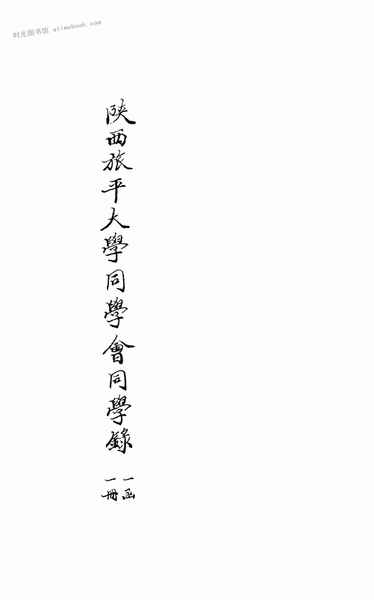 时光图书馆 alimebook.com
陝西旅平大學同學會同學錄
一函
一冊